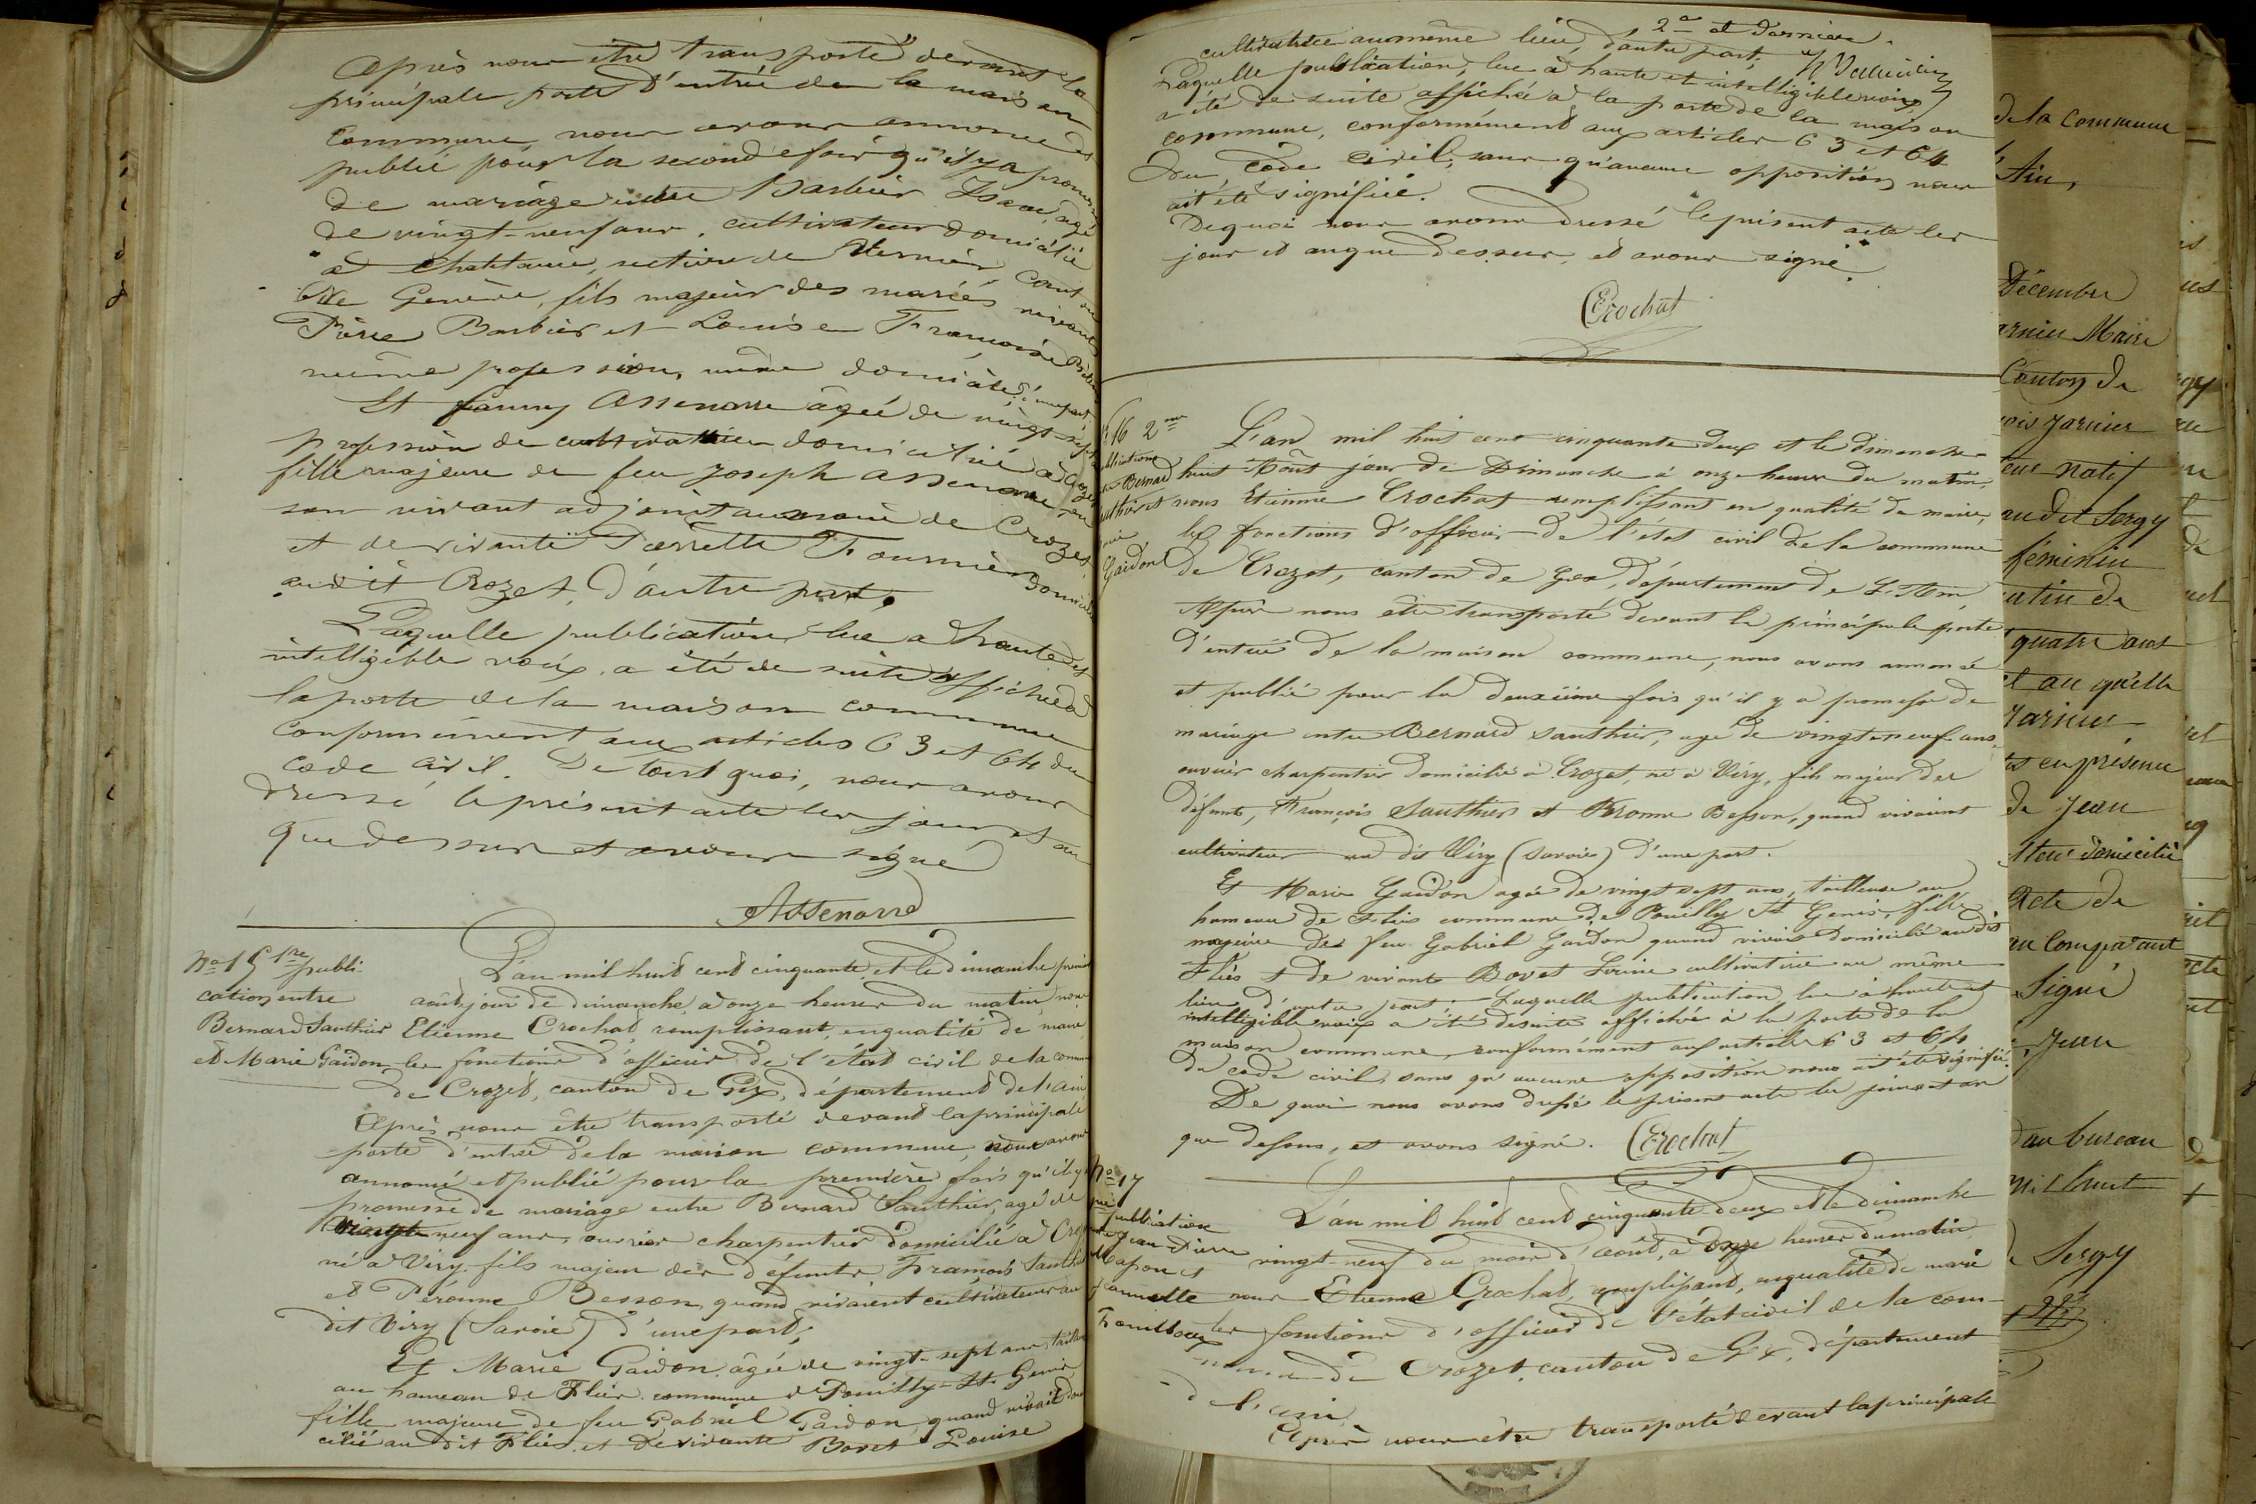 Après nous être transporté devant la
principale porte d'entrée de la maison
commune nous avons annoncé et
publié pour la seconde fois qu'il y a promesse
de mariage entre Barbier Isaac, agé
de vingt-neuf ans, cultivateur domicilié
à Chatelaine, section de Vernier Canton
de Genève, fils majeur des mariés
Pierre Barbier et Louise Françoise
même profession, même domicile, d'une part
Et fanny Assenarre âgée de vingt-sept
profession de cultivatrice domiciliée à Crozet
fille majeure de feu Joseph Assenarre
son vivant adjoint au maire de Crozet
et de vivante Pernette Fournier domiciliée
audit Crozet, d'autre part.
Laquelle publication lue a haute et
intelligible voix a été de suite affichée à
la porte de la maison commune
Conformément aux articles 63 et 64 du
code civil. De tout quoi, nous avons
dressé le présent acte les jour et an
que dessus et avons signé
Assenarre
No 15 1re publi-
cation entre
Bernard Sauthier
et Marie Gaidon
L'an mil huit cent cinquante et le dimanche premier
août jour de dimanche, à onze heures du matin, nous
Etienne Crochat, remplissant, en qualité de maire,
les fonctions d'officier de l'état civil de la commune
de Crozet, canton de Gex, département de l'ain
Après nous être transporté devant la principale
porte d'entrée de la maison commune, nous avons
annoncé et publié pour la première fois qu'il y a
promesse de mariage entre Bernard Sauthier, agé de
vingt-neuf ans, ouvrier charpentier domicilié à Crozet
né à Viry, fils majeur des défunts François Sauthier
et Péronne Besson, quand vivaient cultivateurs au
dit Viry (Savoie) d'une part;
Et Marie Gaidon, âgée de vingt-sept ans, tailleuse
au hameau de Flies, commune de Pouilly-St. Genis
fille majeure de feu Gabriel Gaidon, quand vivait domi-
cilié au dit Flies, et de vivante Bovet Louise
2e et dernière.
cultivatrice au même lieu, d'autre part.
Laquelle publication, lue à haute et intelligible voix,
a été de suite affichée à la porte de la maison
commune, conformément aux articles 63 et 64
du code civil, sans qu'aucune opposition nous
ait été signifiée.
De quoi nous avons dressé le présent acte les
jour et an que dessus, et avons signé.
Crochat
No 16 2me
publication
Bernard
Sauthier et
Gaidon
L'an mil huit cent cinquante deux et le dimanche
huit Août jour de Dimanche à onze heures du matin,
nous Etienne Crochat remplissant en qualité de maire,
les fonctions d'officier de l'état civil de la commune
de Crozet, canton de Gex, département de L'Ain,
Après nous être transporté devant la principale porte
d'entrée de la maison commune, nous avons annoncé
et publié pour la deuxième fois qu'il y a promesse de
mariage entre Bernard Sauthier, agé de vingt-neuf ans,
ouvrier charpentier domicilié à Crozet, né à Viry, fils majeur des
défunts, François Sauthier et Péronne Besson, quand vivaient
cultivateurs au dit Viry (Savoie) d'une part.
Et Marie Gaidon agée de vingt sept ans, tailleuse au
hameau de Flies commune de Pouilly St Genis, fille
majeure de feu Gabriel Gaidon quand vivait domicilié au dit
Flies et de vivante Bovet Louise cultivatrice au même
lieu d'autre part. Laquelle publication lue à haute et
intelligible voix a été de suite affichée à la porte de la
maison commune, conformément aux articles 63 et 64
du code civil, sans qu'aucune opposition nous ait été signifiée.
De quoi nous avons dressé le présent acte les jours et an
que dessus, et avons signé. Crochat
No 17
publication
Jean Pierre
L'an mil huit cent cinquante deux et le dimanche
vingt-neuf du mois d'août, à onze heures du matin,
nous Etienne Crochat, remplissant, en qualité de maire
les fonctions d'officier de l'état civil de la com-
mune de Crozet, canton de Gex, département
de l'ain.
Après nous être transporté devant la principale
de la commune
Ain,
Décembre
Maire
Canton de
Jarnier
natif
audit Sergy
féminin
matin de
quatre ans
et qu'elle
Jarnier
en présence
de Jean
domicilié
Acte de
au Comparant
Signé
Jean
au bureau
Mil huit
Sergy